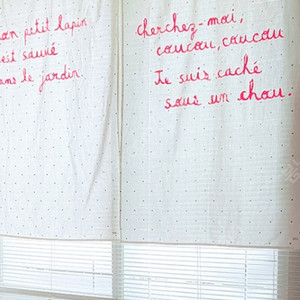 mon petit lapin
s'est sauvé
dans le jardin.
Cherchez-moi,
coucou, coucou
Je suis caché
sous un chou.